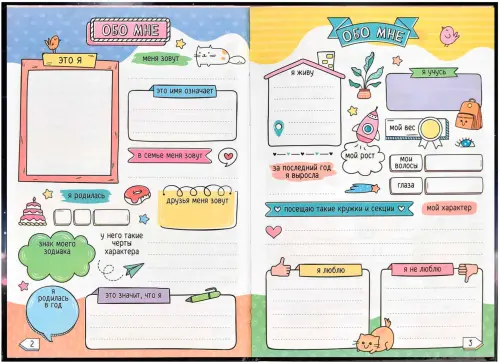 ОБО МНЕ
ЭТО Я
МЕНЯ ЗОВУТ
ЭТО ИМЯ ОЗНАЧАЕТ
В СЕМЬЕ МЕНЯ ЗОВУТ
Я РОДИЛАСЬ
ДРУЗЬЯ МЕНЯ ЗОВУТ
ЗНАК МОЕГО
ЗОДИАКА
У НЕГО ТАКИЕ
ЧЕРТЫ
ХАРАКТЕРА
Я
РОДИЛАСЬ
В ГОД
ЭТО ЗНАЧИТ, ЧТО Я
2
ОБО МНЕ
Я ЖИВУ
Я УЧУСЬ
МОЙ ВЕС
МОЙ РОСТ
МОИ
ВОЛОСЫ
ЗА ПОСЛЕДНИЙ ГОД
Я ВЫРОСЛА
ГЛАЗА
ПОСЕЩАЮ ТАКИЕ КРУЖКИ И СЕКЦИИ
МОЙ ХАРАКТЕР
Я ЛЮБЛЮ
Я НЕ ЛЮБЛЮ
3